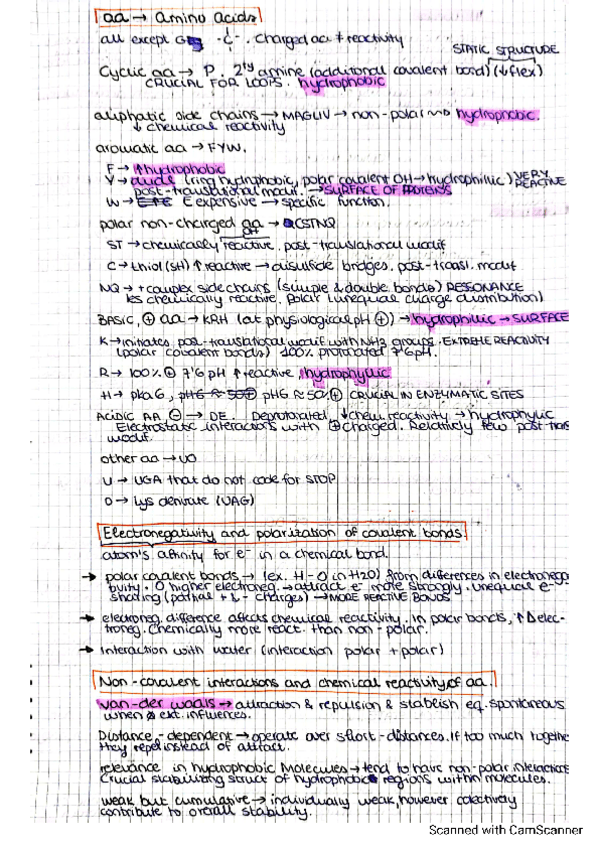 aa → Amino Acids
all except G -C- . Charged aa ≠ reactivity
STATIC STRUCTURE
Cyclic aa → P. 2ry amine (additional covalent bond) (↓flex)
CRUCIAL FOR LOOPS. hydrophobic
aliphatic side chains → MAGLIV → non-polar → hydrophobic.
↓ chemical reactivity
aromatic aa → FYW.
F → ↑hydrophobic
Y → (ring hydrophobic, polar covalent OH → hydrophillic) VERY REACTIVE
post-translational modif. → SURFACE OF PROTEINS
W → E expensive → specific function.
polar non-charged aa → CSTNQ
OH
ST → chemically reactive. post-translational modif
C → thiol (SH) ↑ reactive → disulfide bridges. post-trasl. modif
NQ → + complex side chains (simple & double bonds) RESSONANCE
les chemically reactive. Polar (unequal charge distribution)
BASIC, ⊕ aa → KRH (at physiological pH ⊕) → hydrophillic → SURFACE
K → initiates post-translational modif with NH3 groups. EXTREME REACTIVITY
(polar covalent bonds) 100% protonated 7'6 pH.
R → 100% ⊕ 7'6 pH ↑ reactive, hydrophyllic
H → pka 6, pH6 ≈ 50% ⊕ CRUCIAL IN ENZYMATIC SITES
ACIDIC AA ⊖ → DE. Deprotonated. ↓chem reactivity → hydrophylic
Electrostatic interactions with ⊕ charged. Relatively few post-trans
modif.
other aa → UO
U → UGA that do not code for STOP
O → Lys derivate (UAG)
Electronegativity and polarization of covalent bonds.
atom's affinity for e- in a chemical bond.
→ polar covalent bonds → (ex. H-O in H2O) from differences in electronega
tivity. O higher electroneg. → attract e- more strongly. Unequal e-
sharing (partial + & - charges) → MORE REACTIVE BONDS
→ electroneg. difference affects chemical reactivity. In polar bonds, ↑Δ elec-
troneg. Chemically more react. than non-polar.
→ Interaction with water (interaction polar + polar)
Non-covalent interactions and chemical reactivity of aa.
van-der waals → attraction & repulsion & stablish eq. spontaneous
when ext. influences.
Distance-dependent → operate over short-distances. If too much togethe
they repel instead of attract.
relevance in hydrophobic molecules → tend to have non-polar interactions
Crucial stabilizing struct of hydrophobic regions within molecules.
weak but cumulative → individually weak, however colectively
contribute to overall stability.
Scanned with CamScanner